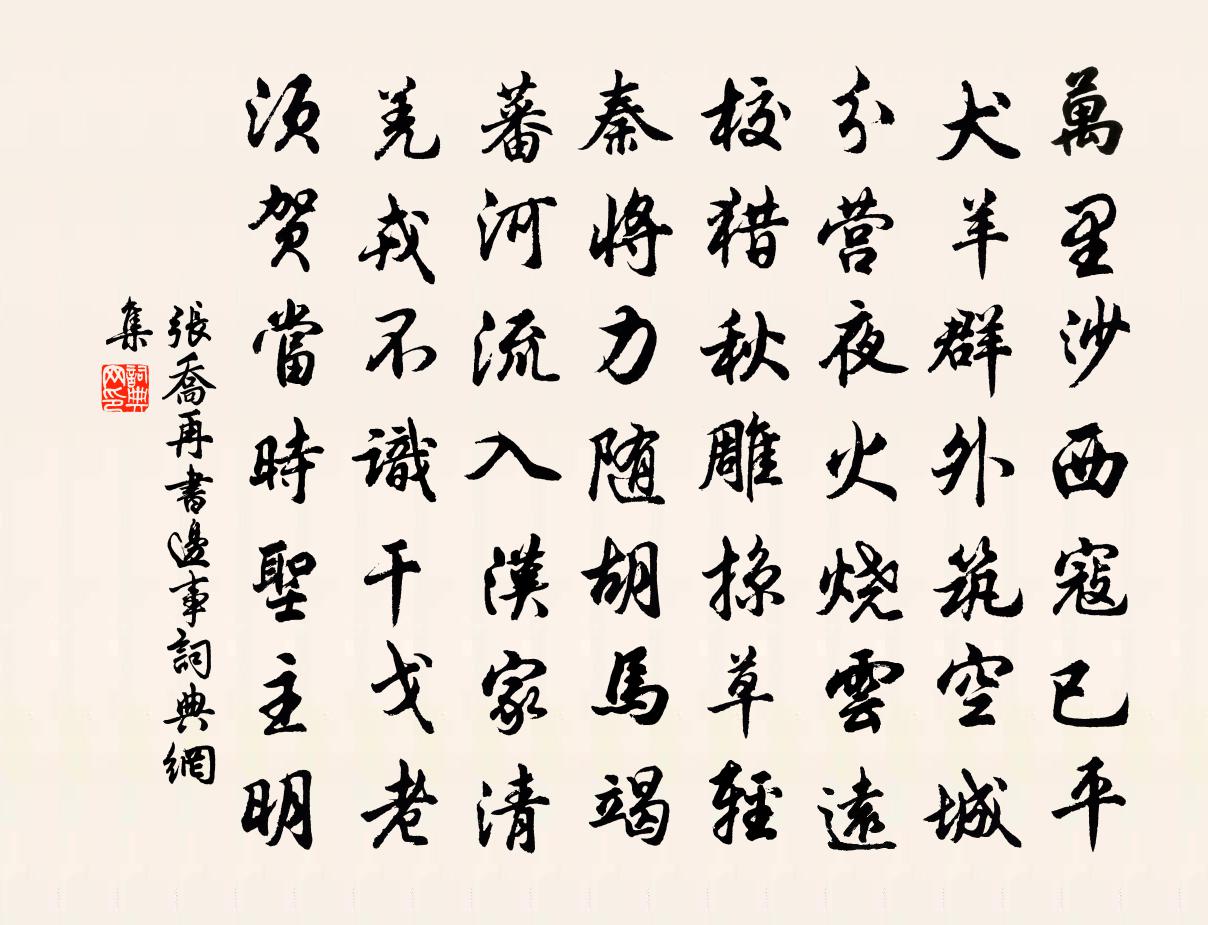 萬里沙西寇已平
犬羊群外筑空城
分营夜火烧雲遠
校猎秋雕掠草輕
秦將力随胡馬竭
蕃河流入漢家清
羌戎不識干戈老
须贺當時聖主明
張喬再書邊事詞典網
集
詞典网印